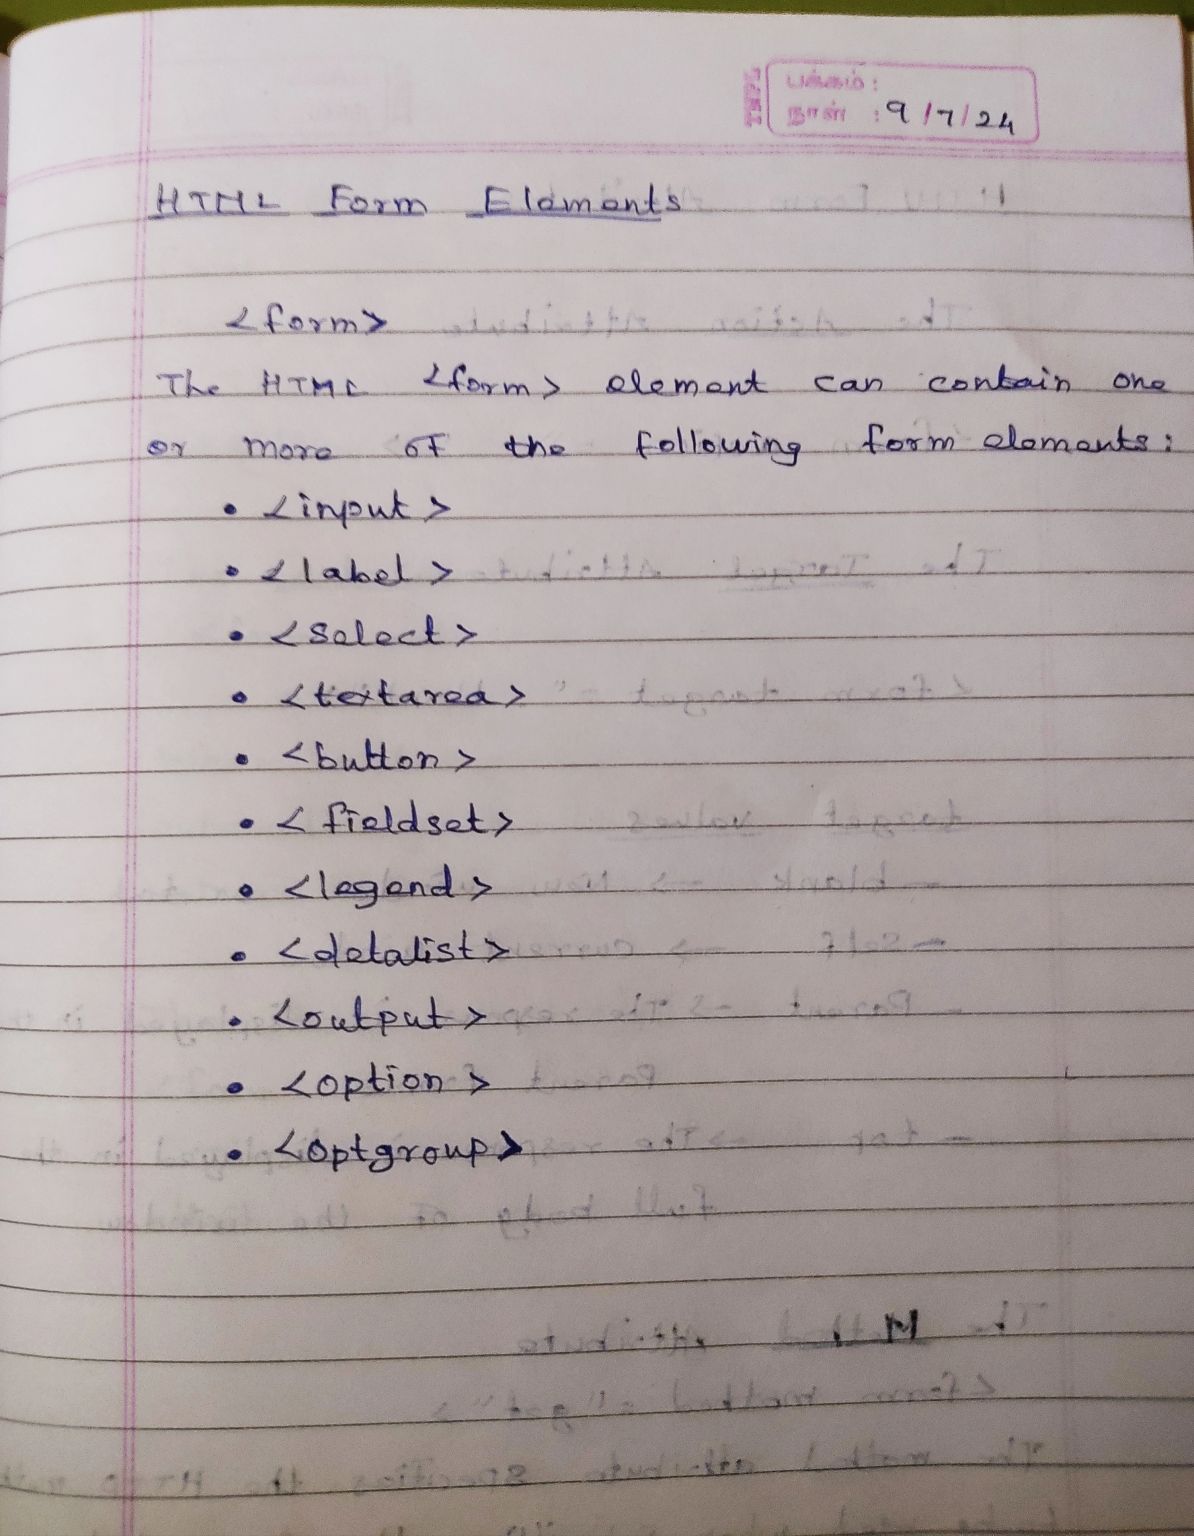 TSPL
பக்கம் :
நாள் : 9/7/24
HTML Form Elements
<form>
The HTML <form> element can contain one
or more of the following form elements:
• <input>
• <label>
• <select>
• <textarea>
• <button>
• <fieldset>
• <legend>
• <datalist>
• <output>
• <option>
• <optgroup>